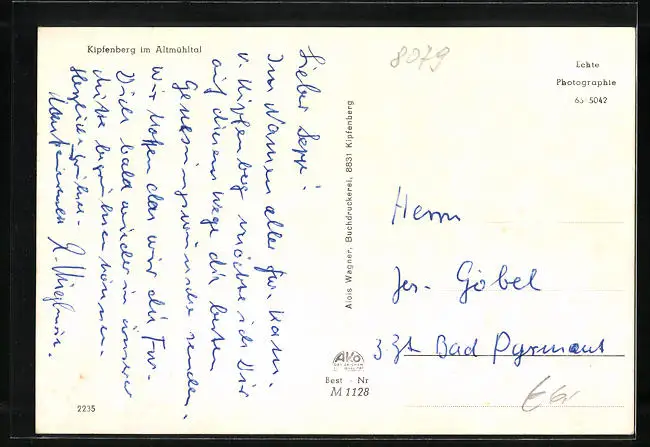 Kipfenberg im Altmühltal
8079
Echte
Photographie
65 5042
Lieber Sepp!
Im Namen aller
v. Kipfenberg möchte ich Dir
auf diesem Wege die besten
Genesungswünsche senden.
Wir hoffen das wir die
Dich bald wieder in unserer
Mitte begrüßen können.
Herzliche Grüße.
Alois Wagner, Buchdruckerei, 8831 Kipfenberg
Herrn
Jos. Göbel
z Zt Bad Pyrmont
AKO
Best - Nr
M 1128
2235